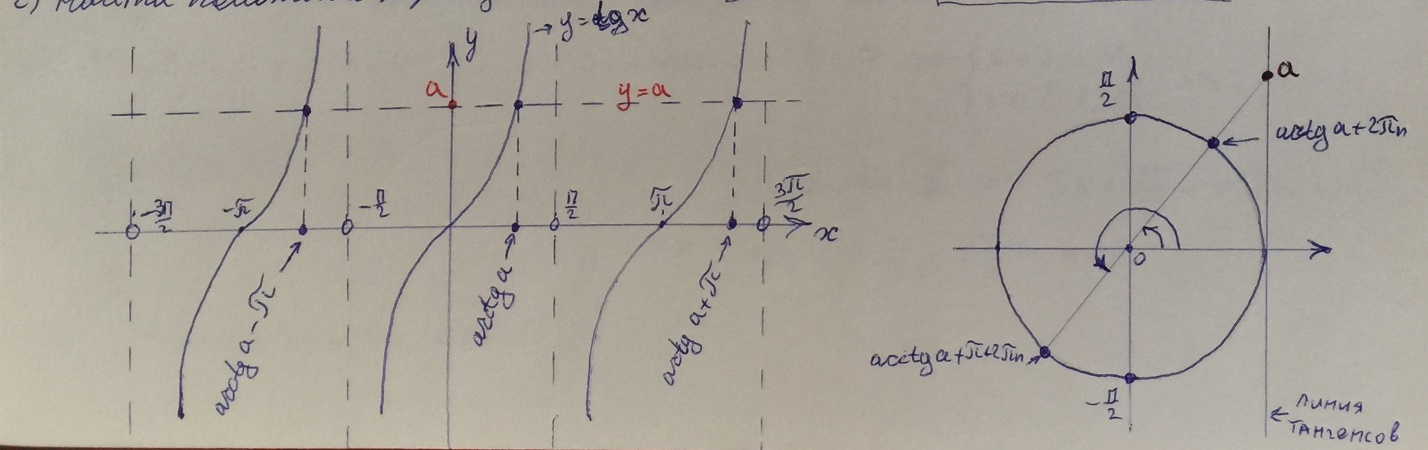 y = tg x
y
a
y = a
-3π/2
-π
-π/2
π/2
π
3π/2
x
arctg a - π
arctg a
arctg a + π
π/2
a
arctg a + 2πn
0
arctg a + π + 2πn
-π/2
линия
тангенсов